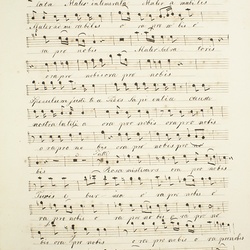 lata Mater intemerata Mater a mabilis
Mater ad mi rabilis o ra pro no bis
ra pro nobis Mater Salva toris
ora pro nobis ora pro nobis
Speculum justi ti ae Sedes sapi entiae causa
nostrae laetiti ae ora pro nobis ora pro nobis
o ra pro no bis ora pro nobis pro
bis Rosa mistica ora pro nobis
Turris e bur nea o ra pro nobis o
ra pro nobis o ra pro no bis o ra pro no
bis ora pro nobis o ra pro nobis o ra pro nobis